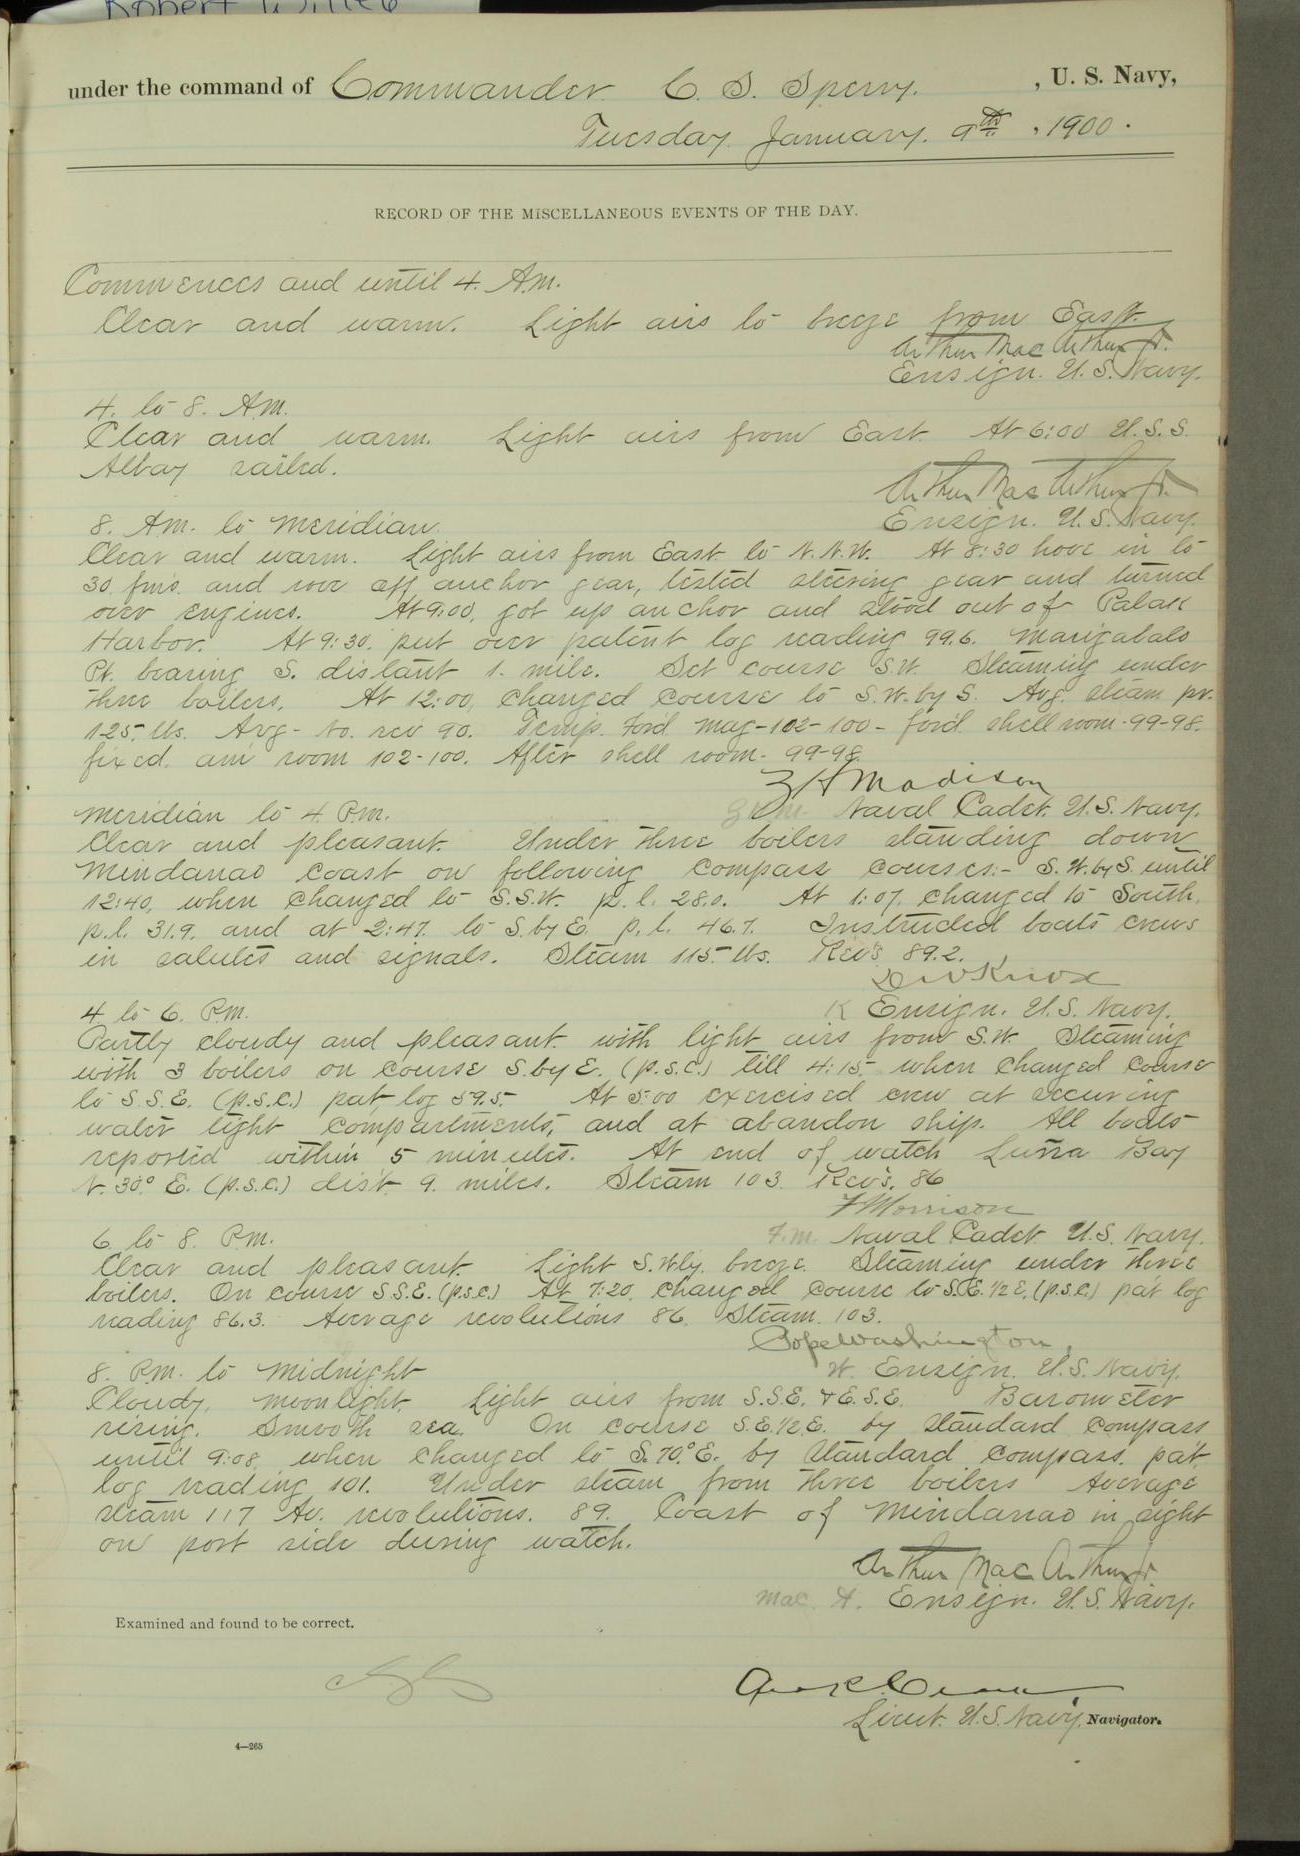 under the command of Commander C. S. Sperry. , U. S. Navy,
Tuesday January. 9th , 1900.
RECORD OF THE MISCELLANEOUS EVENTS OF THE DAY.
Commences and until 4. A.m.
Clear and warm. Light airs to breeze from East.
Arthur MacArthur Jr.
Ensign. U.S. Navy.
4. to 8. A.M.
Clear and warm. Light airs from East. At 6:00 U.S.S.
Albay sailed.
Arthur MacArthur Jr.
Ensign. U.S. Navy.
8. A.m. to Meridian.
Clear and warm. Light airs from East to N.N.W. At 8:30 hove in to
30 fms. and rove off anchor gear, tested steering gear and turned
over engines. At 9:00, got up anchor and stood out of
Harbor. At 9:30. put over patent log reading 99.6.
Pt. bearing S. distant 1. mile. Set course S.W. Steaming under
three boilers. At 12:00, changed course to S.W. by S. Avg. steam pr.
125 lbs. Avg- No. rev 90. Temp. Ford mag-102-100- ford shell room-99-98.
fixed. am room 102-100. After shell room- 99-98.
Z H Madison
Naval Cadet. U.S. Navy.
Meridian to 4 P.m.
Clear and pleasant. Under three boilers standing down
Mindanao coast on following compass courses:- S.W. by S. until
12:40, when changed to S.S.W. p.l. 28.0. At 1:07. changed to South.
p.l. 31.9. and at 2:47. to S. by E. p.l. 46.7. Instructed boats crews
in salutes and signals. Steam 115 lbs. Rev's 89.2.
D W Knox
K Ensign. U.S. Navy.
4 to 6. P.M.
Partly cloudy and pleasant with light airs from S.W. Steaming
with 3 boilers on course S. by E. (p.s.c.) till 4:15 when changed course
to S.S.E. (p.s.c.) pat log 59.5. At 5:00 exercised crew at securing
water tight compartments, and at abandon ship. All boats
reported within 5 minutes. At end of watch Bay
N. 30° E. (p.s.c.) dist 9. miles. Steam 103. Rev's. 86
F Morrison
F.M. Naval Cadet U.S. Navy.
6 to 8. P.m.
Clear and pleasant. Light S.W'ly. breeze. Steaming under three
boilers. On course S.S.E. (p.s.c.) At 7:20, changed course to S.E. 1/2 E. (p.s.c.) pat log
reading 86.3. Average revolutions 86. Steam. 103.
Pope Washington,
W. Ensign. U.S. Navy.
8. P.M. to Midnight
Cloudy, moonlight. Light airs from S.S.E. & E.S.E. Barometer
rising. Smooth sea. On course S.E. 1/2 E. by standard compass
until 9:08, when changed to S. 70° E. by standard compass. pat
log reading 101. Under steam from three boilers Average
steam 117 Av. revolutions. 89. Coast of Mindanao in sight
on port side during watch.
Arthur MacArthur Jr.
Mac. A. Ensign. U.S. Navy.
Examined and found to be correct.
Lieut. U.S. Navy, Navigator.
4—265